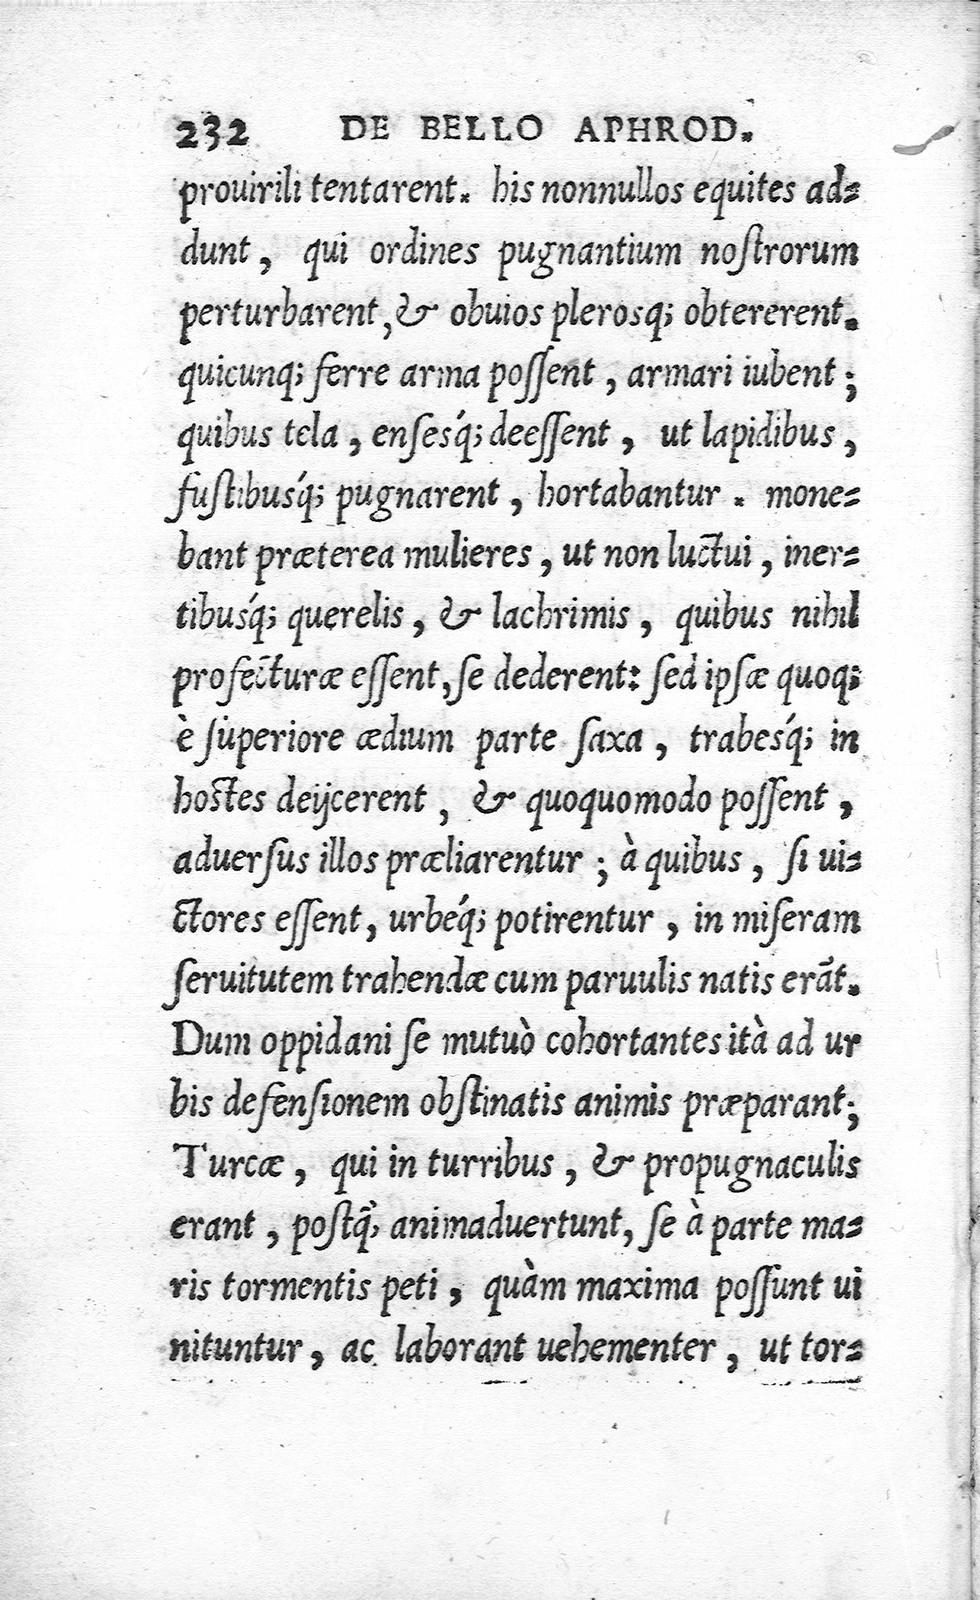 232 DE BELLO APHROD.
prouirili tentarent. his nonnullos equites ad=
dunt, qui ordines pugnantium noſtrorum
perturbarent, & obuios plerosq; obtererent.
quicunq; ferre arma poſſent, armari iubent;
quibus tela, enſesq́; deeſſent, ut lapidibus,
fuſtibusq́; pugnarent, hortabantur. mone=
bant præterea mulieres, ut non luctui, iner=
tibusq́; querelis, & lachrimis, quibus nihil
profecturæ eſſent, ſe dederent: ſed ipſæ quoq;
è ſuperiore ædium parte ſaxa, trabesq́; in
hostes deijcerent, & quoquomodo poſſent,
aduerſus illos præliarentur; à quibus, ſi ui=
ctores eſſent, urbéq; potirentur, in miſeram
ſeruitutem trahendæ cum paruulis natis erãt.
Dum oppidani ſe mutuò cohortantes ità ad ur
bis defenſionem obſtinatis animis præparant;
Turcæ, qui in turribus, & propugnaculis
erant, poſtq̃; animaduertunt, ſe à parte ma=
ris tormentis peti, quàm maxima poſſunt ui
nituntur, ac laborant uehementer, ut tor=